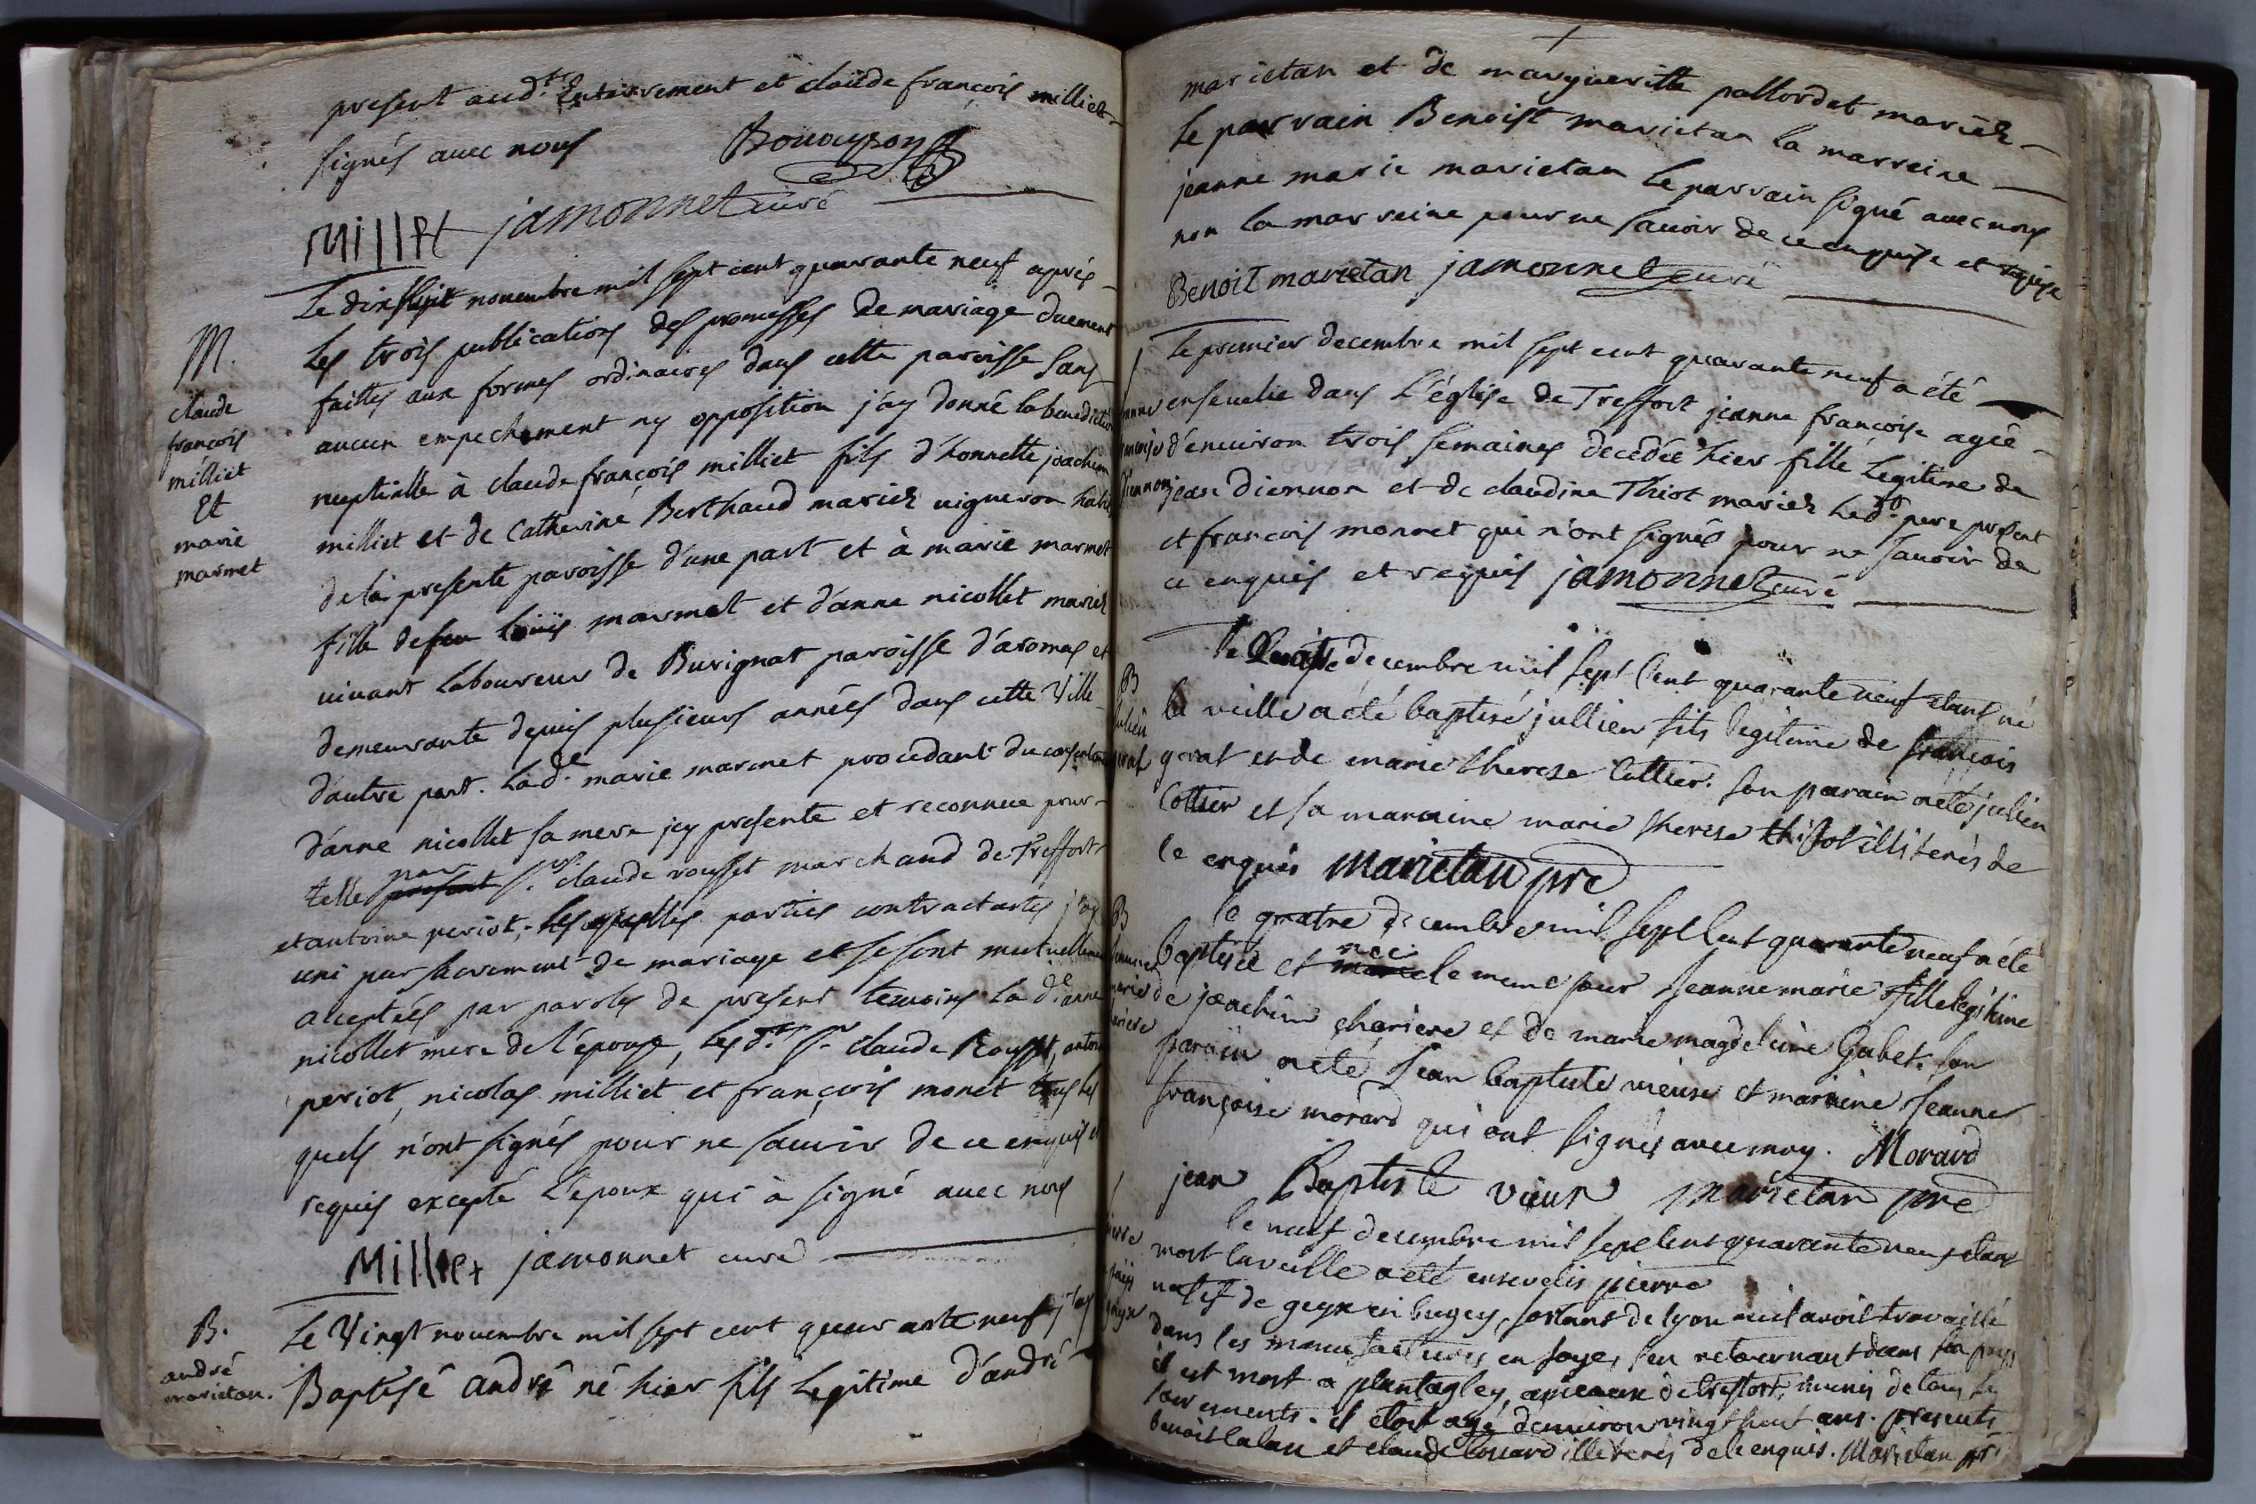 present aud.t Enterrement et claude françois milliet
signés avec nous Bonouyson
Milliet jamonnet curé
Le dix huit novembre mil sept cent quarante neuf après
Les trois publications des promesses de mariage duement
faittes aux formes ordinaires dans cette paroisse sans
aucun empechement ny opposition j'ay donné la benediction
nuptialle à claude françois milliet fils d'honnette joachim
milliet et de Catherine Berthaud mariez vigneron
de la presente paroisse d'une part et à marie marmet
fille de feu Louis marmet et d'anne nicollet mariez
vivant laboureur de Burignat paroisse d'aromas et
demeurante depuis plusieurs années dans cette Ville
d'autre part. lad.e marie marmet procedant du
d'anne nicollet sa mere icy presente et reconnue pour
telle par Sr. claude rousset marchand de Treffort
et antoine periot, lesquelles parties contractantes j'ay
uni par sacrement de mariage et se sont mutuellement
acceptées par paroles de present temoins la d.e anne
nicollet mere de l'epouse, les d.ts Sr claude Rousset, antoine
periot, nicolas milliet et françois monet tous les
quels n'ont signés pour ne savoir de ce enquis et
requis excepté l'epoux qui à signé avec nous
Milliet jamonnet curé
Le Vingt novembre mil sept cent quarante neuf j'ay
Baptisé andré né hier fils Legitime d'andré
M.
claude
françois
milliet
Et
marie
marmet
B.
andré
marietan.
marietan et de margueritte pallordet mariez
le parrain Benoist marietan la marreine
jeanne marie marietan le parrain signé avec nous
non la marreine pour ne savoir de ce enquise et requise
Benoit marietan jamonnet curé
Le premier decembre mil sept cent quarante neuf a été
ensevelie dans L'église de Treffort jeanne françoise agée
d'environ trois semaines decedée hier fille Legitime de
jean Diennon et de claudine Thiot mariez led.t pere present
et françois monnet qui n'ont signés pour ne savoir de
ce enquis et requis jamonnet curé
le decembre mil sept Cent quarante neuf etant né
la veille a été baptisé jullien fils legitime de françois
gerat et de marie therese Cottier. son parain a été julien
Cottier et sa maraine marie therese thisot illiterés de
ce enquis Marietan pre
le quatre decembre mil sept Cent quarante neuf a été
baptisée et née le meme jour Jeanne marie fille legitime
de joachim chariere et de marie magdeleine Gabet. son
parain a eté Jean baptiste vieux et maraine Jeanne
françoise morard qui ont signés avec moy. Morard
jean Baptiste vieux Marietan pre
le neuf decembre mil sept Cent quarante neuf etant
mort la veille a eté enseveli pierre
natif de geyx en bugey, sortant de lyon ou il avoit travaillé
dans les manufactures en soye, s'en retournant dans son pays
il est mort a plantagley, de treffort, munis de tous les
sacrements. il etoit agé d'environ vingt huit ans. presents
benoit lalau et claude Couard illiterés de ce enquis. Marietan pre
B
julien
gerat
B